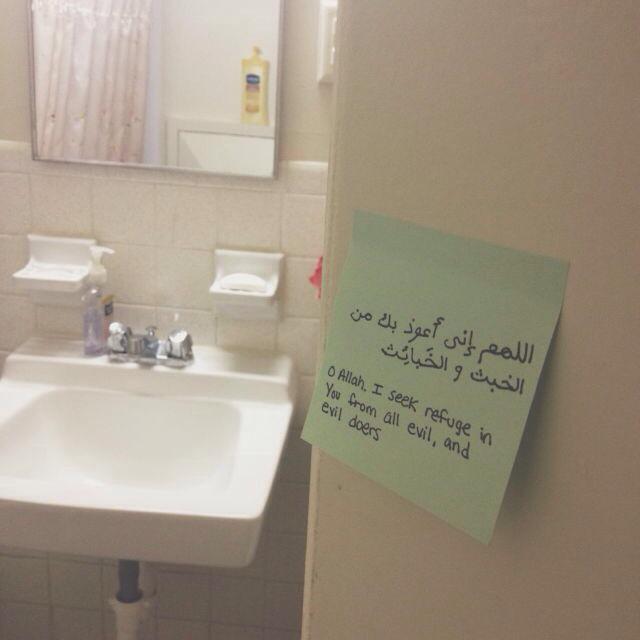 اللهم إنى أعوذ بك من
الخبث و الخَبائث
O Allah, I seek refuge in
You from all evil, and
evil doers